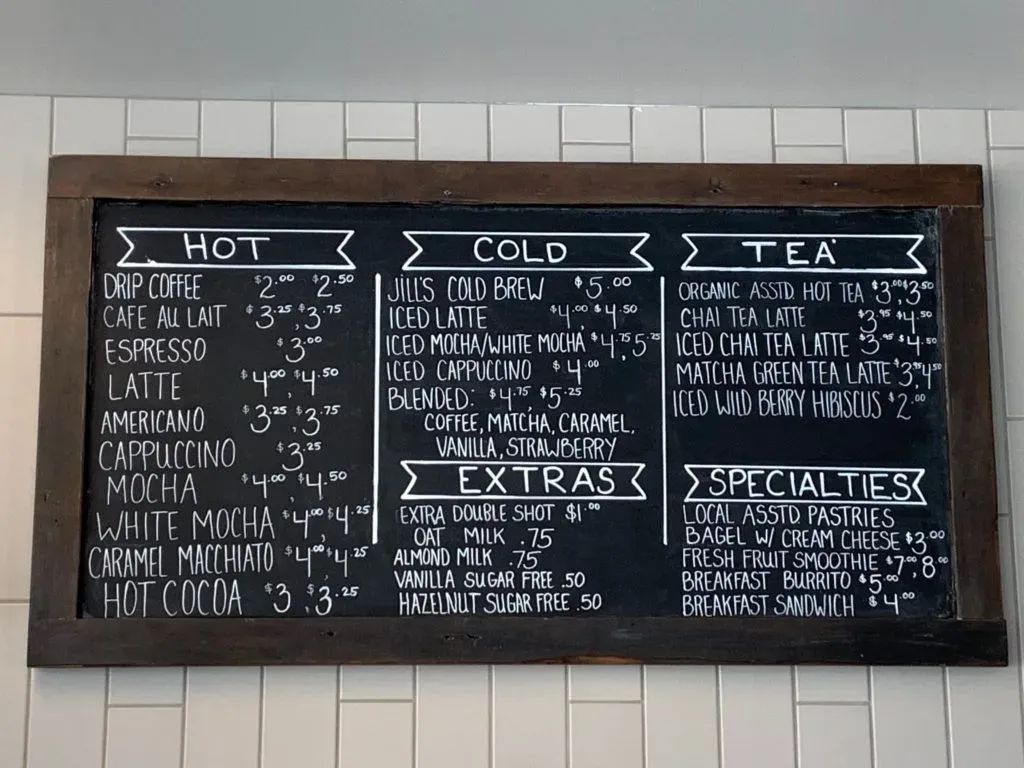 HOT
DRIP COFFEE $2.00 $2.50
CAFE AU LAIT $3.25, $3.75
ESPRESSO $3.00
LATTE $4.00, $4.50
AMERICANO $3.25, $3.75
CAPPUCCINO $3.25
MOCHA $4.00, $4.50
WHITE MOCHA $4.00, $4.25
CARAMEL MACCHIATO $4.00, $4.25
HOT COCOA $3, $3.25
COLD
JILL'S COLD BREW $5.00
ICED LATTE $4.00, $4.50
ICED MOCHA/WHITE MOCHA $4.75, 5.25
ICED CAPPUCCINO $4.00
BLENDED: $4.75, $5.25
COFFEE, MATCHA, CARAMEL,
VANILLA, STRAWBERRY
EXTRAS
EXTRA DOUBLE SHOT $1.00
OAT MILK .75
ALMOND MILK .75
VANILLA SUGAR FREE .50
HAZELNUT SUGAR FREE .50
TEA
ORGANIC ASSTD. HOT TEA $3.00, $3.50
CHAI TEA LATTE $3.95, $4.50
ICED CHAI TEA LATTE $3.95, $4.50
MATCHA GREEN TEA LATTE $3.95, 4.50
ICED WILD BERRY HIBISCUS $2.00
SPECIALTIES
LOCAL ASSTD. PASTRIES
BAGEL W/ CREAM CHEESE $3.00
FRESH FRUIT SMOOTHIE $7.00, 8.00
BREAKFAST BURRITO $5.00
BREAKFAST SANDWICH $4.00